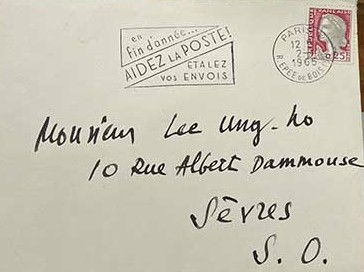 en
fin d'année...
AIDEZ LA POSTE!
ETALEZ
VOS ENVOIS
PARIS
12
1965
R. EPÉE DE BOIS
REPUBLIQUE FRANÇAISE
0,25
Monsieur Lee Ung-No
10 Rue Albert Dammouse
Sèvres
S. O.